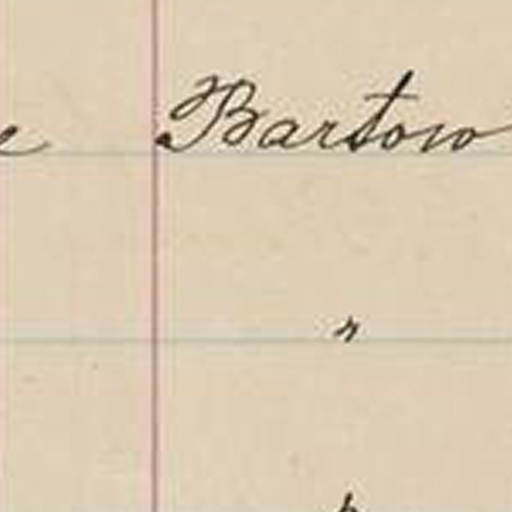 e Bartow
"
"